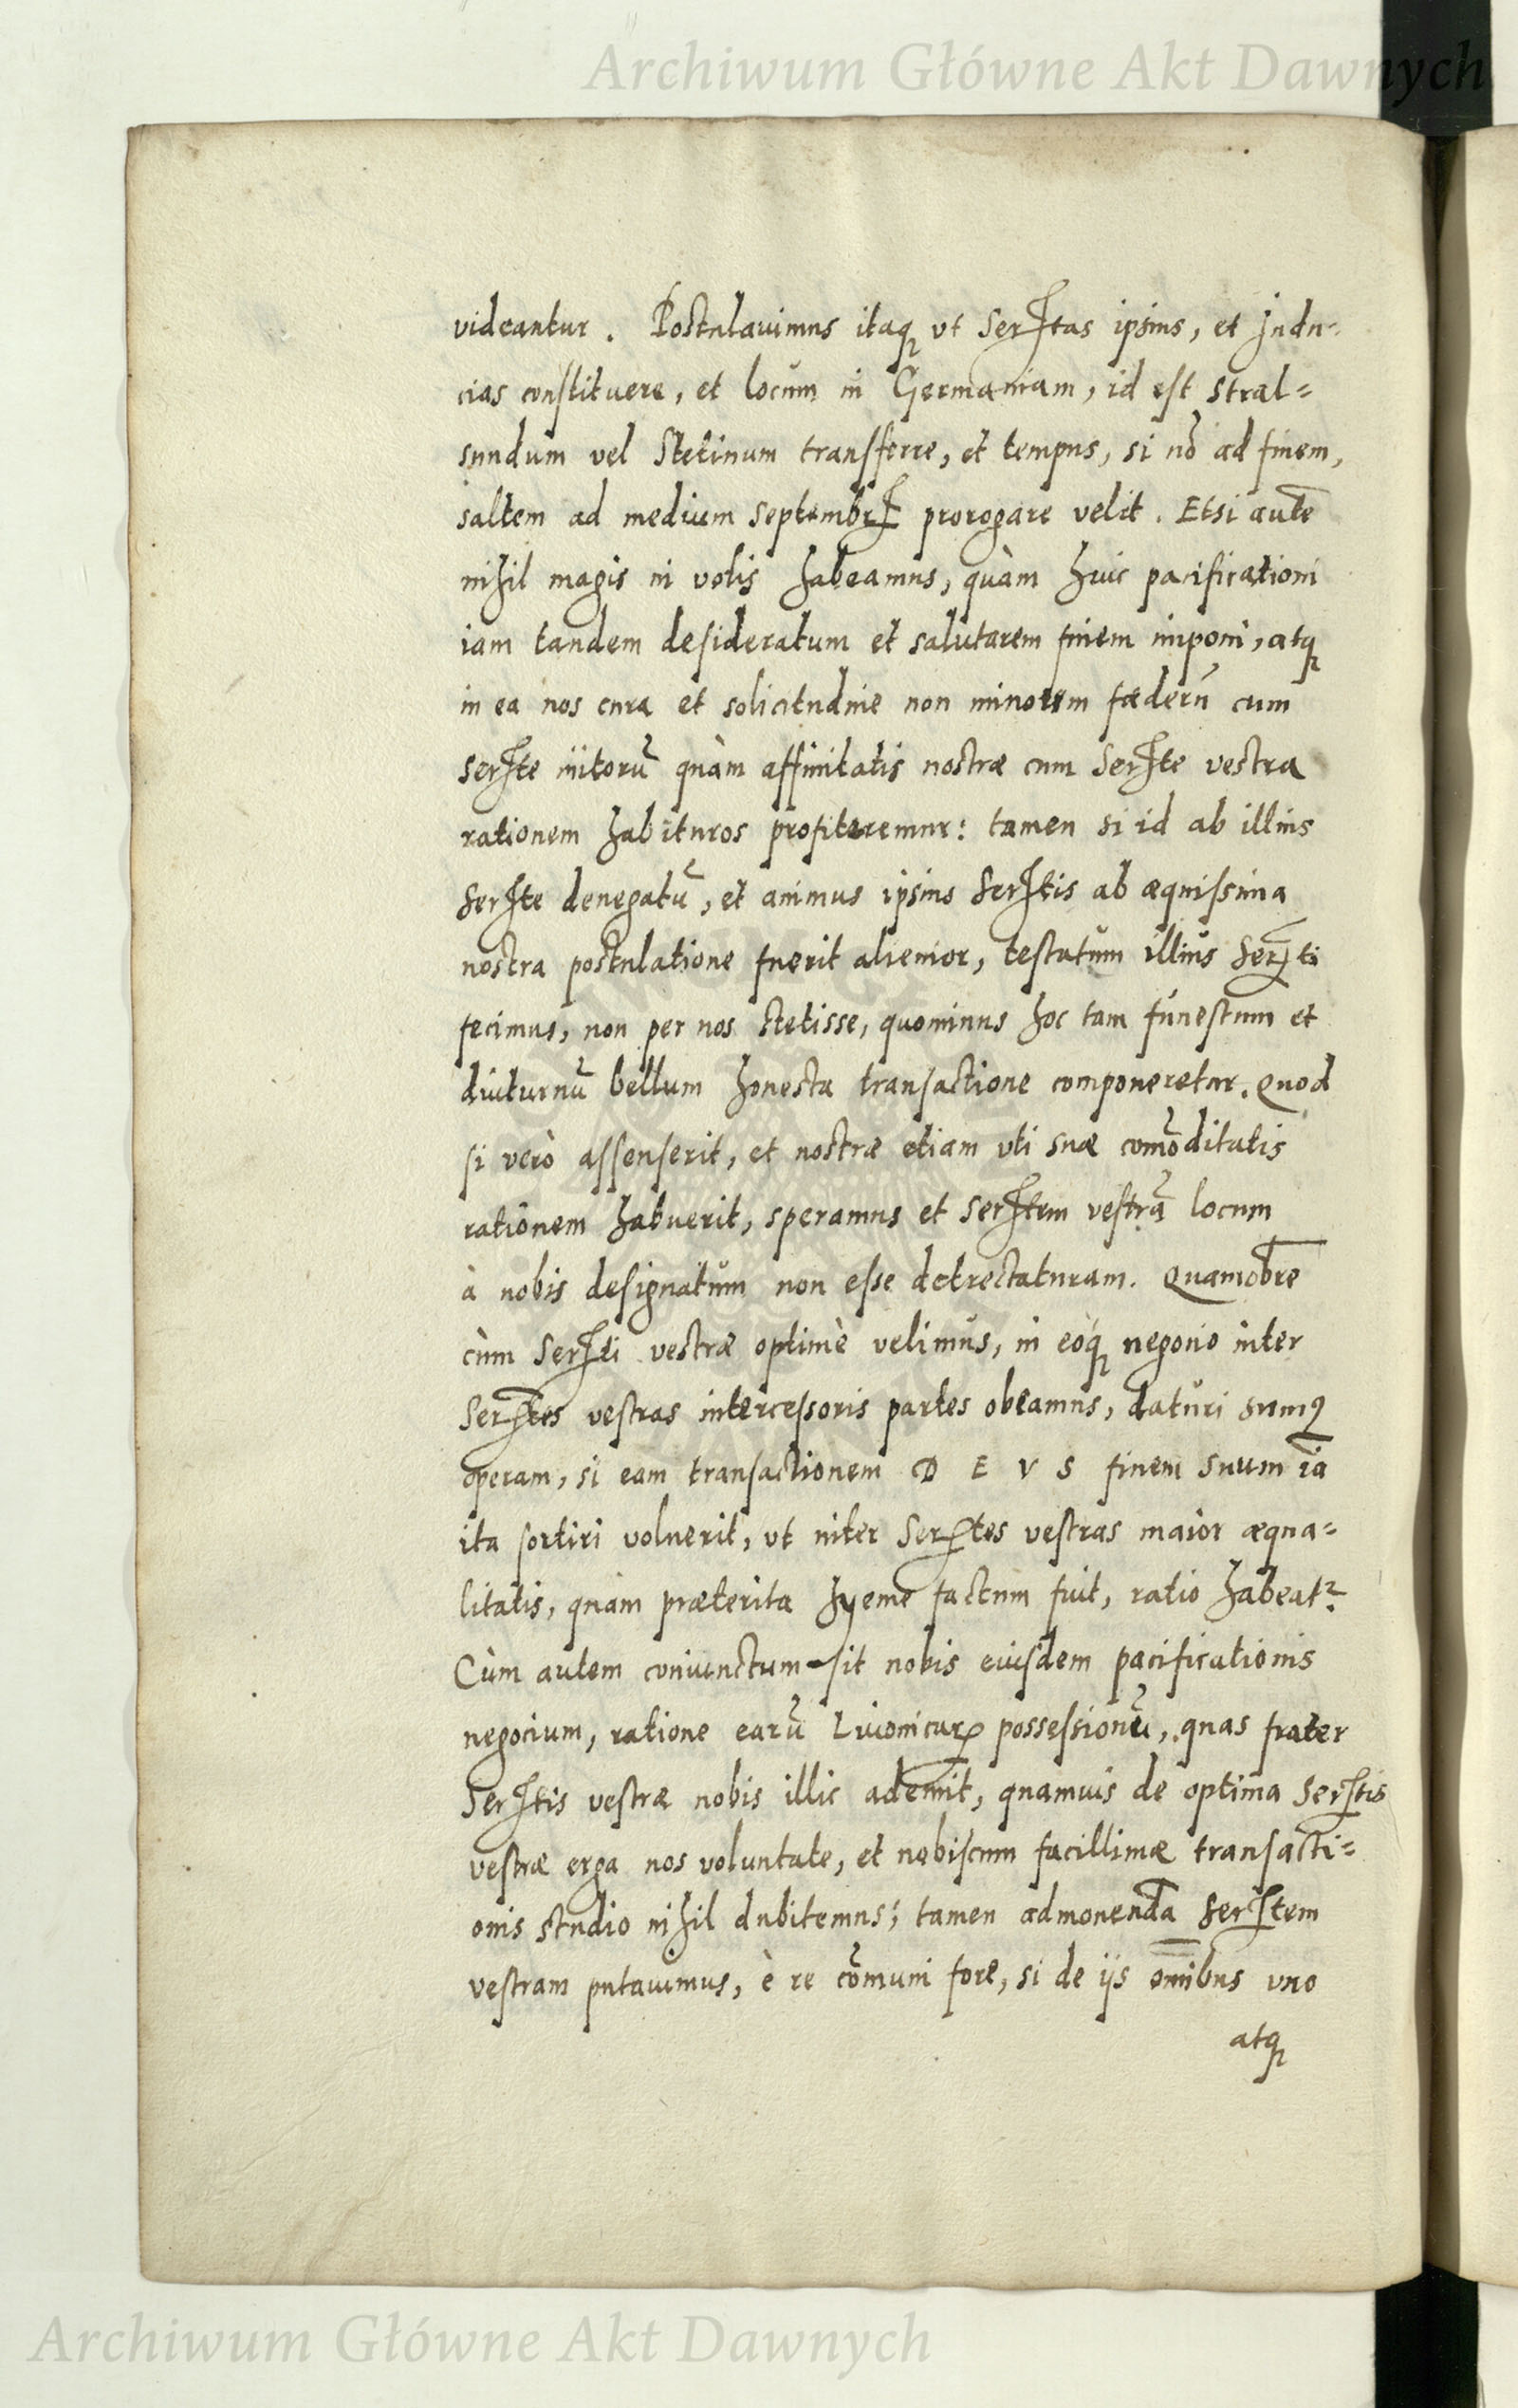 Archiwum Główne Akt Dawnych
videantur. Postulauimus itaq; vt Serᵗᵗas ipsius, et Indu-
cias constituere, et locum in Germaniam, id est Stral=
sundum vel Stetinum transferre, et tempus, si nō ad finem,
saltem ad medium Septembrꝭ prorogare velit. Etsi autē
nihil magis in votis habeamus, quàm huic pacificationi
iam tandem desideratum et salutarem finem imponi, atq;
in ea nos cura et solicitudine non minorem fœderū cum
Serᵗᵗe initorū quàm affinitatis nostræ cum Serᵗᵗe vestra
rationem habituros profiteremur: tamen si id ab illius
Serᵗᵗe denegatū, et animus ipsius Serᵗᵗis ab æquissima
nostra postulatione fuerit alienior, testatum illius Serᵗᵗi
fecimus, non per nos stetisse, quominus hoc tam funestum et
diuturnū bellum honesta transactione componeretur. Quod
si verò assenserit, et nostræ etiam vti suæ com̄oditatis
rationem habuerit, speramus et Serᵗᵗem vestrā locum
à nobis designatum non esse detrectaturam. Quamobrē
cùm Serᵗᵗi vestræ optimè velimus, in eoq́; negocio inter
Serᵗᵗes vestras intercessoris partes obeamus, daturi sumꝰ
operam, si eam transactionem D E V S finem suum iā
ita sortiri voluerit, vt inter Serᵗᵗes vestras maior æqua=
litatis, quàm præterita hyeme factum fuit, ratio habeatᷣ.
Cùm autem coniunctum sit nobis eiusdem pacificationis
negocium, ratione earū Liuonicarꝝ possessionū, quas frater
Serᵗᵗis vestræ nobis illic ademit, quamuis de optima Serᵗᵗis
vestræ erga nos voluntate, et nobiscum facillimæ transacti=
onis studio nihil dubitemus; tamen admonendā Serᵗᵗem
vestram putauimus, è re cōmuni fore, si de ijs om̄ibus vno
atq;
Archiwum Główne Akt Dawnych